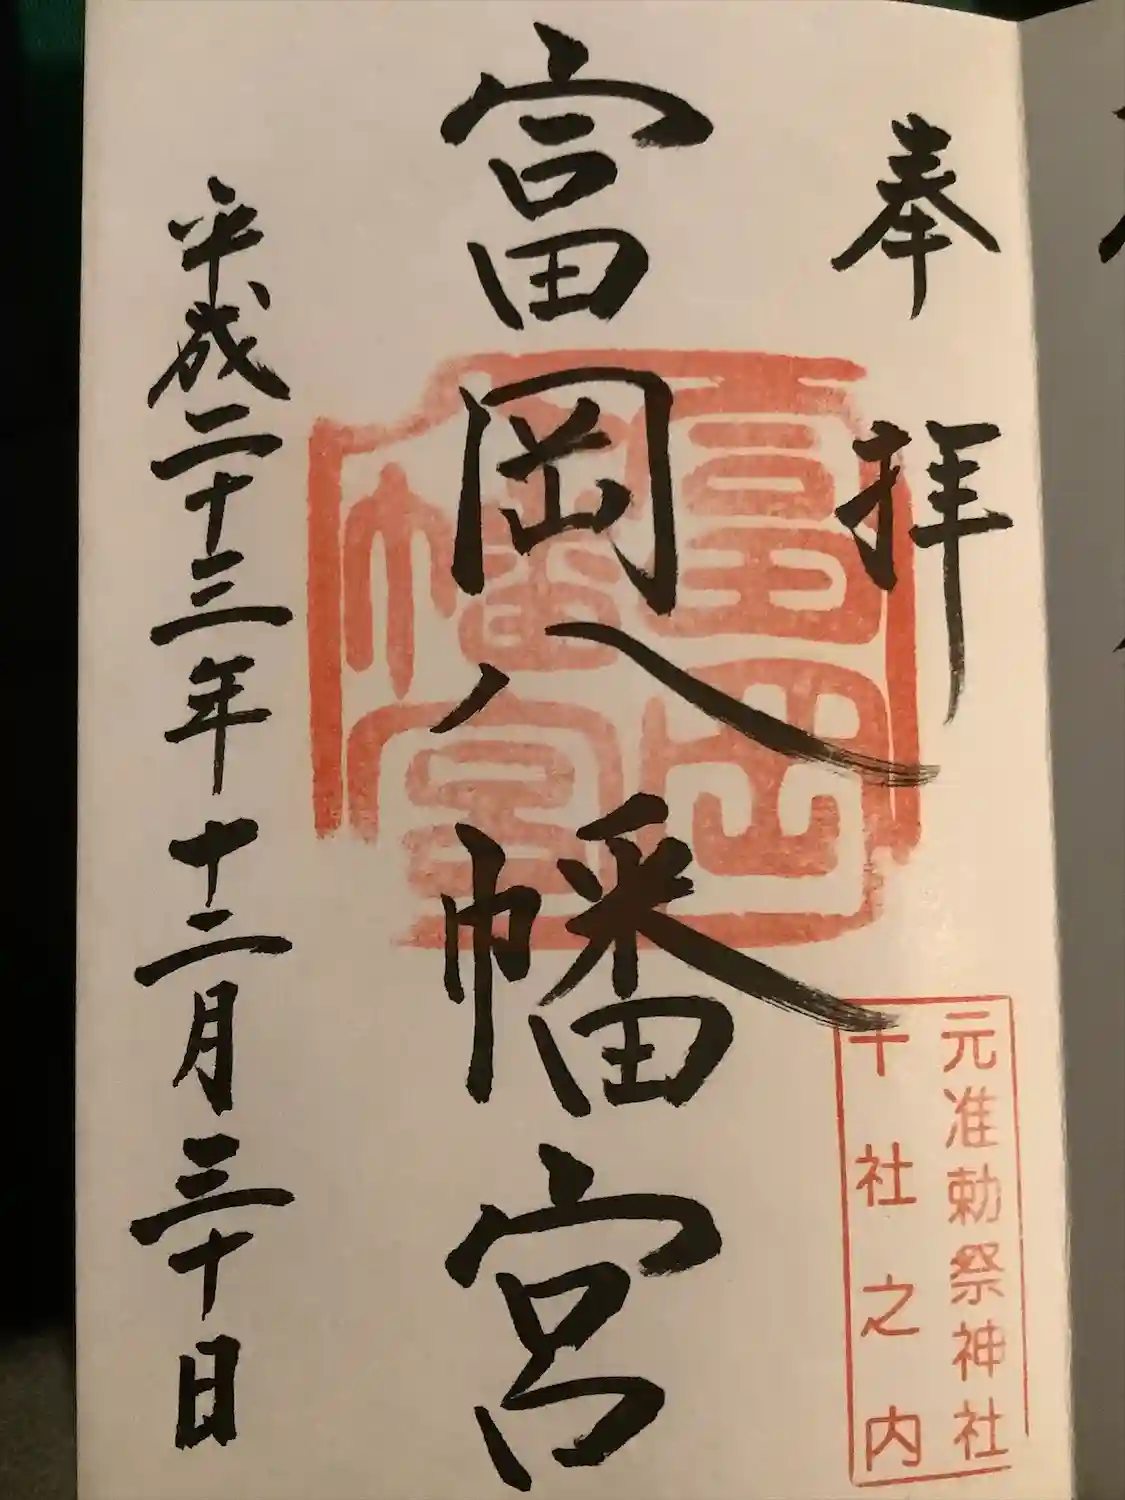 奉拝
元准勅祭神社
十社之内
富岡八幡宮
富岡
幡宮
平成二十三年十二月三十日